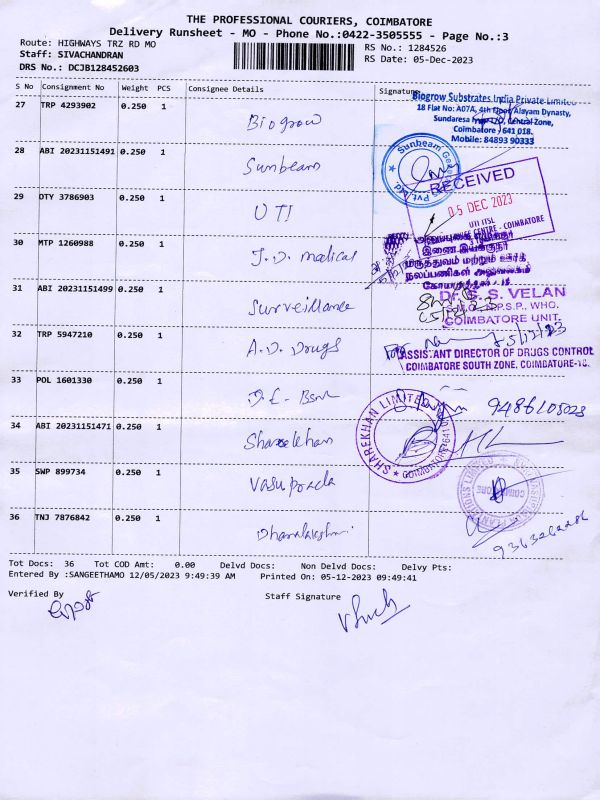 THE PROFESSIONAL COURIERS, COIMBATORE
Delivery Runsheet - MO - Phone No.:0422-3505555 - Page No.:3
Route: HIGHWAYS TRZ RD MO
RS No.: 1284526
Staff: SIVACHANDRAN
RS Date: 05-Dec-2023
DRS No.: DCJB128452603
S No Consignment No Weight PCS Consignee Details Signature
27 TRP 4293902 0.250 1 Biogrow
Biogrow Substrates India Private Limited
18 Flat No: A07A, 4th Floor, Alayam Dynasty,
Central Zone,
Coimbatore - 641 018.
Mobile: 84893 90333
28 ABI 20231151491 0.250 1 Sunbeam
Sunbeam
Pvt Ltd
29 DTY 3786903 0.250 1 UTI
RECEIVED
05 DEC 2023
UTI ITSL
CENTRE - COIMBATORE
30 MTP 1260988 0.250 1 J.D. medical
இணை இயக்குநர்
மருத்துவம் மற்றும் ஊரக
நலப்பணிகள் அலுவலகம்
31 ABI 20231151499 0.250 1 Surveillance
S. VELAN
COIMBATORE UNIT.
32 TRP 5947210 0.250 1 A.D. Drugs
5/12/23
ASSISTANT DIRECTOR OF DRUGS CONTROL
COIMBATORE SOUTH ZONE, COIMBATORE-18.
33 POL 1601330 0.250 1
34 ABI 20231151471 0.250 1 Sharekhan
SHAREKHAN LIMITED
COIMBATORE-641 018
35 SWP 899734 0.250 1
COIMBATORE
36 TNJ 7876842 0.250 1 Dhanalakshmi
Tot Docs: 36 Tot COD Amt: 0.00 Delvd Docs: Non Delvd Docs: Delvy Pts:
Entered By :SANGEETHAMO 12/05/2023 9:49:39 AM Printed On: 05-12-2023 09:49:41
Verified By
Staff Signature